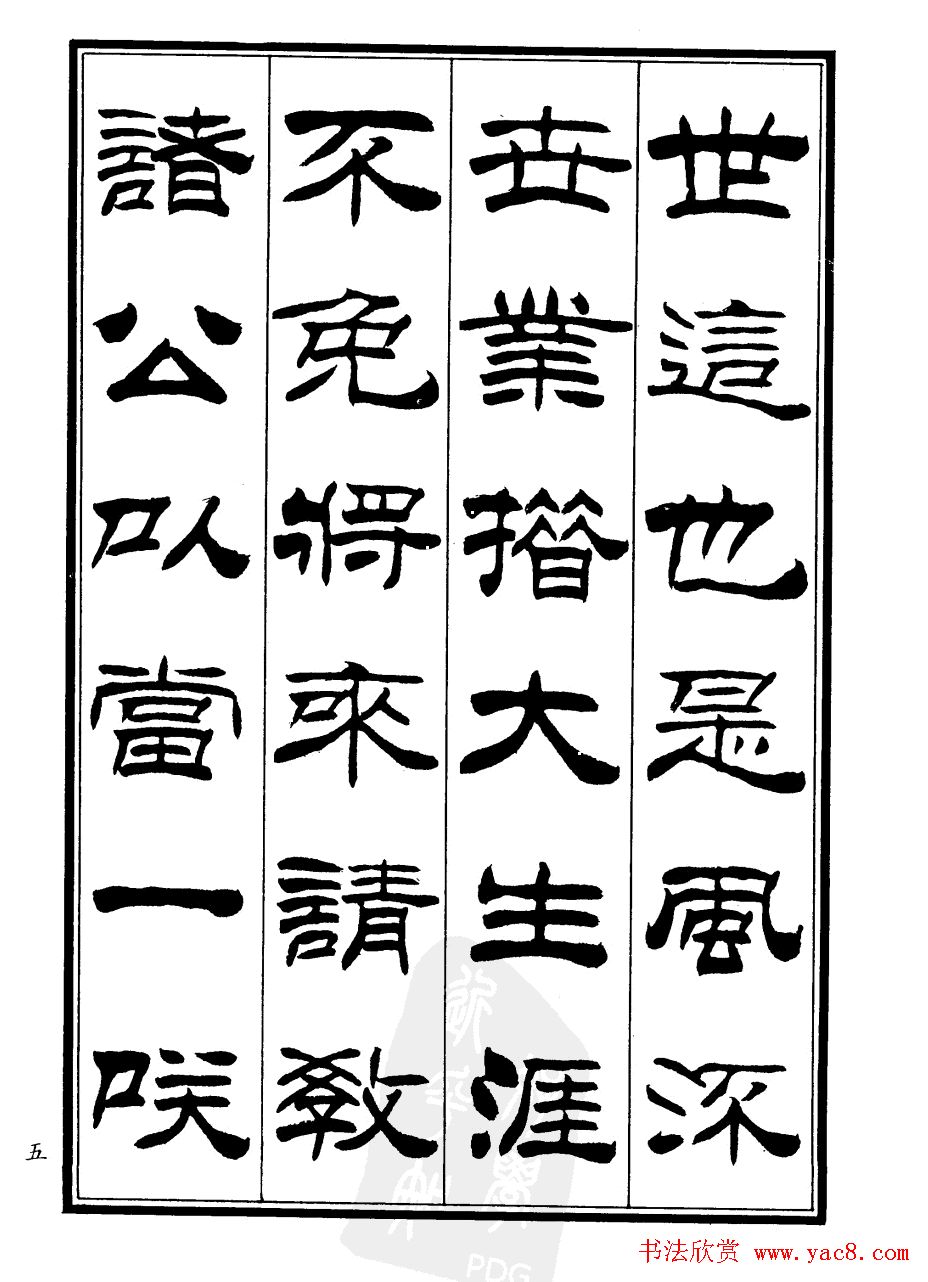 世這也是風流
世業措大生涯
不免將來請教
諸公以當一咲
五
PDG
书法欣赏 www.yac8.com